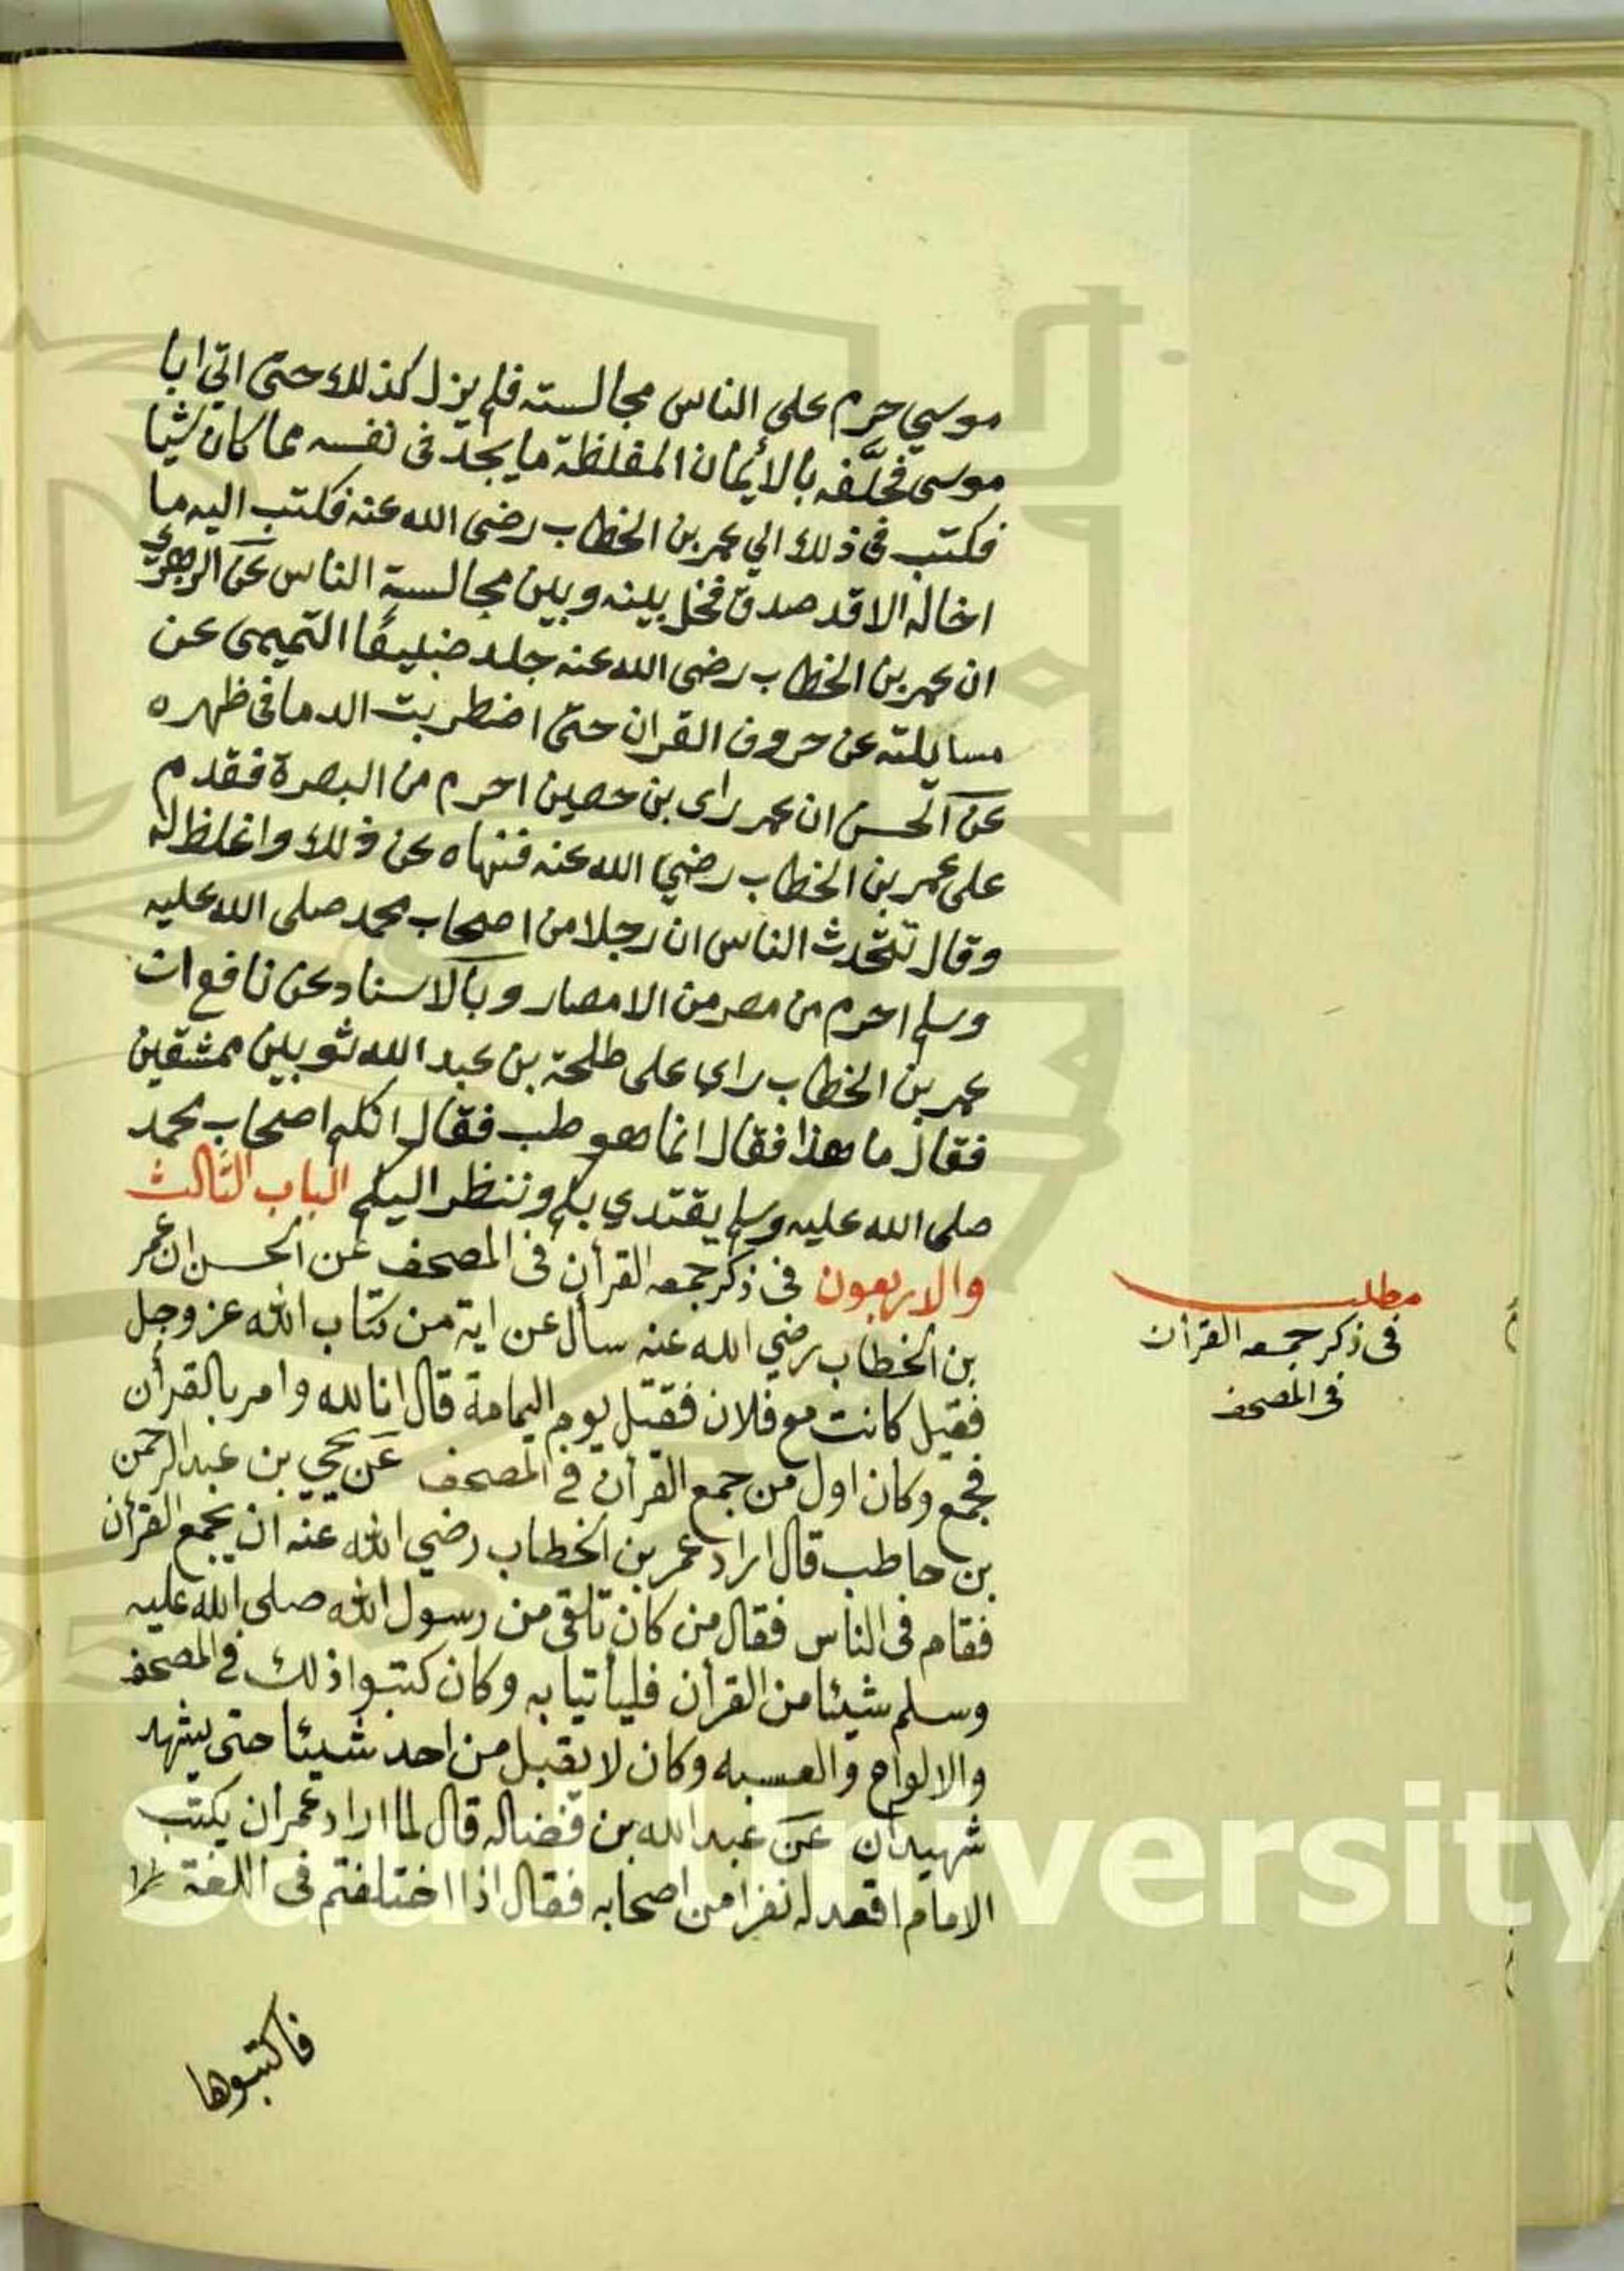 موسي حرم على الناس مجالسته فلم يزل كذلك حتى اتي ابا
موسى فحلَّفه بالأيمان المغلظة ما يجد في نفسه مما كان شيا
فكتب في ذلك الي عمر بن الخطاب رضى الله عنه فكتب اليه ما
اخاله الا قد صدق فخل بينه وبين مجالسة الناس عن الزهري
ان عمر بن الخطاب رضى الله عنه جلد ضبيعًا التميمى عن
مسايلته عن حروف القران حتى اضطربت الدما في ظهره
عن الحسن ان عمر راى بن حصين احرم من البصرة فقدم
على عمر بن الخطاب رضي الله عنه فنهاه عن ذلك واغلظ له
وقال تتحدث الناس ان رجلا من اصحاب محمد صلى الله عليه
وسلم احرم من مصر من الامصار وبالاسناد عن نافع ان
عمر بن الخطاب راي على طلحة بن عبد الله ثوبين ممشقين
فقال ما هذا فقال انما هو طب فقال انكم اصحاب محمد
صلى الله عليه وسلم يقتدي بكم وننظر اليكم الباب الثالث
والاربعون في ذكر جمعه القرأن في المصحف عن الحسن ان عمر
بن الخطاب رضي الله عنه سأل عن اية من كتاب الله عز وجل
فقيل كانت مع فلان فقتل يوم اليمامة قال انا لله وامر بالقرأن
فجمع وكان اول من جمع القرأن في المصحف عن يحيي بن عبد الرحمن
بن حاطب قال اراد عمر بن الخطاب رضي الله عنه ان يجمع القرأن
فقام في الناس فقال من كان تلقى من رسول الله صلى الله عليه
وسلم شيئا من القرأن فليأتيا به وكان كتبوا ذلك في المصحف
والالواح والعسبه وكان لا يقبل من احد شيئا حتى يشهد
شهيدان عن عبد الله بن فضاله قال لما اراد عمر ان يكتب
الامام اقعد له نفرا من اصحابه فقال اذا اختلفتم في اللغة
فاكتبوها
مطلب
في ذكر جمعه القرأن
في المصحف
Saud University